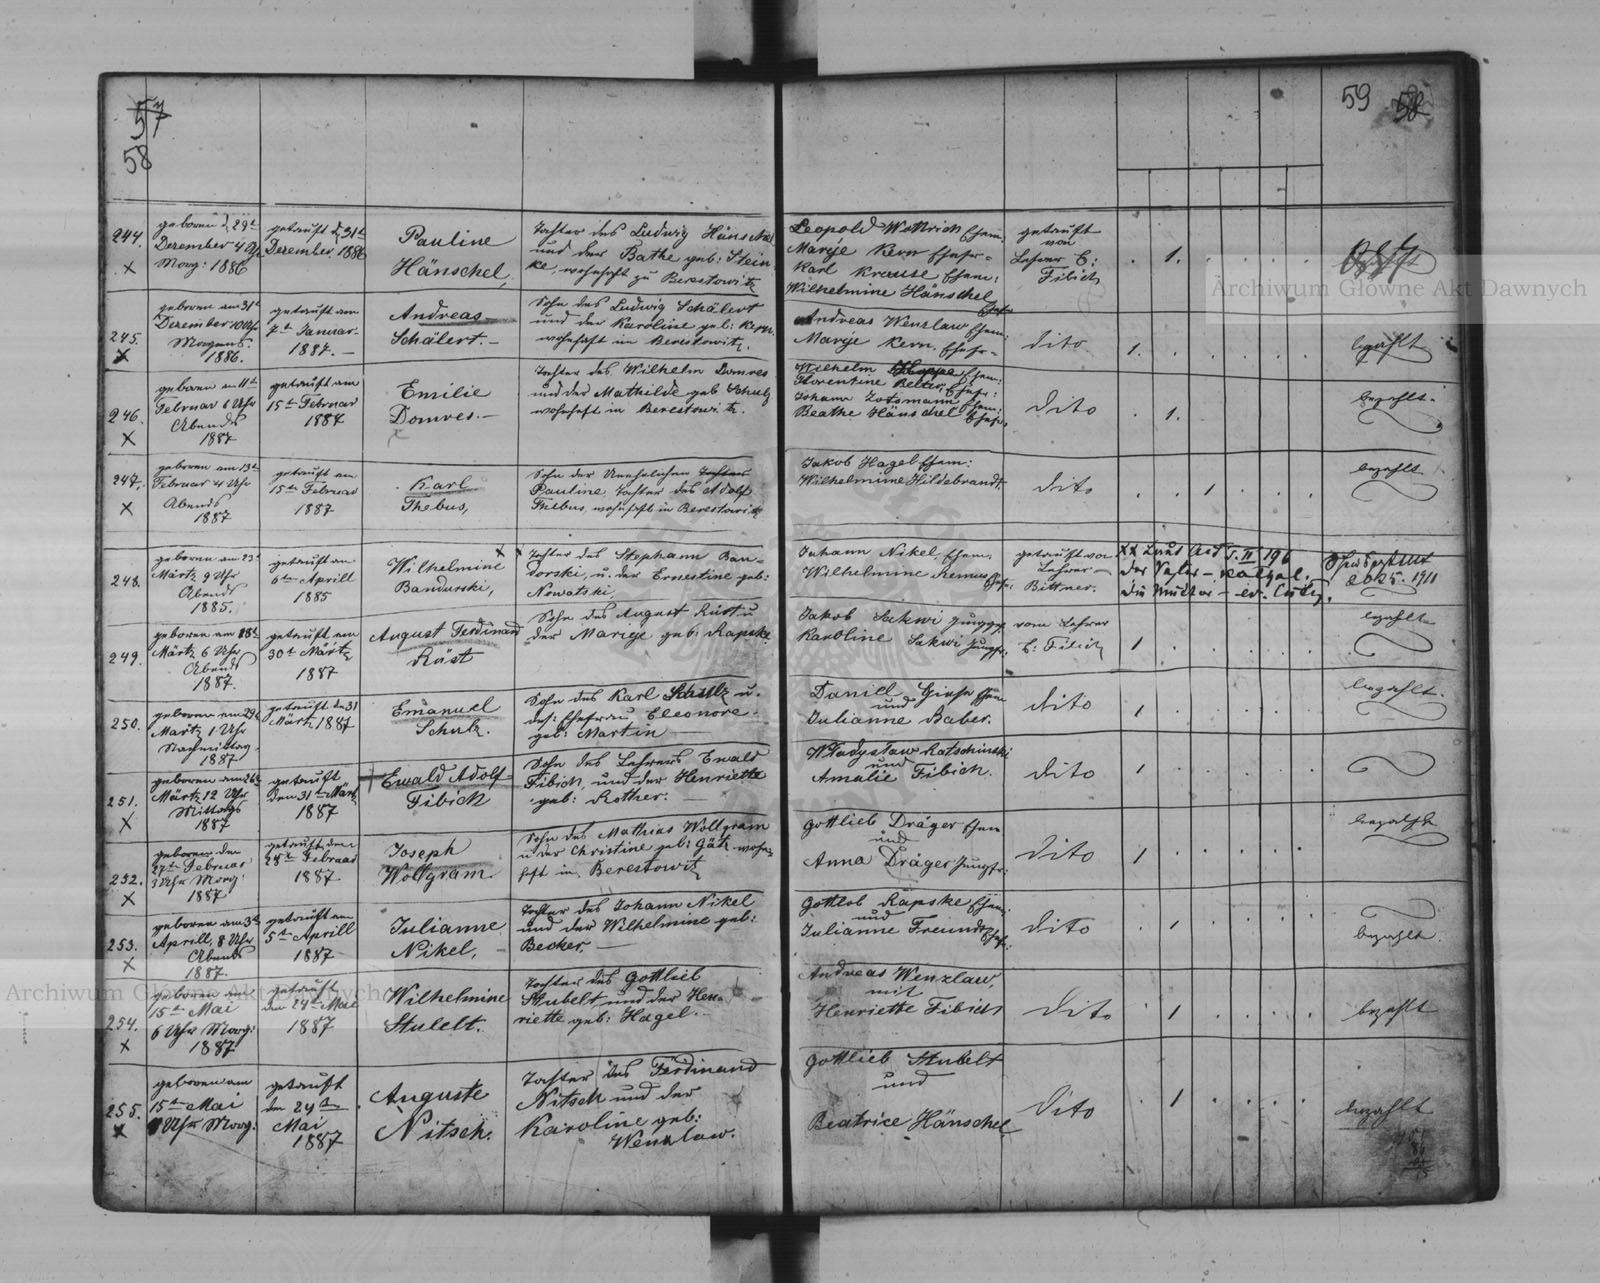 57
58
59 58
244.
geboren d. 29t
Dezember 4 Uhr
Morg: 1886
getauft d. 31t
Dezember 1886
Pauline
Hänschel,
Tochter des Ludwig Hänschel
und der Bathe geb: Stein-
ke, wohnhaft zu Berestowitz
Leopold Wottrich Ehem:
Marije Kern Ehefr-
Karl Krause Ehem:
Wilhelmine Hänschel
Ehefr
getauft
von
Lehrer E:
Fibich
1.
245.
geboren am 31t
Dezember 10 Uhr
Morgens.
1886.
getauft am
7ten Januar-
1887.-
Andreas
Schälert.-
Sohn des Ludwig Schälert
und der Karoline geb: Kern.
wohnhaft in Berestowitz.
Andreas Wenzlaw Ehem:
Marije Kern. Ehefr-
dito
1.
bezahlt
246.
geboren am 11t
Februar 6 Uhr
Abends
1887
getauft am
15ten Februar
1887
Emilie
Domres.-
Tochter des Wilhelm Domres
und der Mathilde geb Schulz
wohnhaft in Berestowitz.
Wilhelm Ehem:
Florentine Ehefr:
Johann Ehem:
Beathe Hänschel Ehefr.
dito
1.
bezahlt.
247.
geboren am 13ten
Februar 4 Uhr
Abends
1887
getauft am
15ten Februar
1887
Karl
Thebus,
Sohn der Unehelichen Tochter
Pauline, Tochter des Adolf
Thebus, wohnhaft in Berestowitz
Jakob Hagel Ehem:
Wilhelmine Hildebrandt.
dito
1
bezahlt
248.
geboren am 23t
Märtz 9 Uhr
Abends
1885.
getauft am
6ten Aprill
1885
Wilhelmine
Bandurski,
Tochter des Stephann Ban-
dorski, u. der Ernestine geb:
Nowatski,
Johann Nikel, Ehem.
Wilhelmine Remus Ehefr.
getauft von
Lehrer
Bittner.
xx Laut Akt s. II 196
der Vater -
die Mutter - ev. Luth.
1911
249.
geboren am 18t
Märtz 6 Uhr
Abends
1887.
getauft am
30t Märtz
1887
August Ferdinand
Rüst
Sohn des August Rüst u
der Marije geb: Rapske.
Jakob Sakwi Junggs.
Karoline Sakwi Jungfr.
vom Lehrer
E: Fibich
1
bezahlt
250.
geboren am 29t
Märtz 1 Uhr
Nachmittag.
1887
getauft den 31
Märtz 1887
Emanuel
Schulz.
Sohn des Karl Schulz u.
des: Ehefrau Eleonore
geb: Martin
Daniel Giese Ehem
und
Julianne Baber.
dito
1
bezahlt.
251.
geboren am 26t
Märtz 12 Uhr
Mittags
1887
getauft
den 31ten Märtz
1887
Ewald Adolf
Fibich
Sohn des Lehrers Ewald
Fibich, und der Henriette
geb: Rother.
Wladyslaw Ratschinski
und
Amalie Fibich.
dito
1
252.
geboren den
27ten Februar
3 Uhr Morg:
1887
getauft den
28t Februar
1887
Joseph
Wollgram.
Sohn des Mathias Wollgram
u der Christine geb: Götz wohn-
haft in Berestowitz
Gottlieb Dräger Ehem
und
Anna Dräger Jungfr:
dito
1
bezahlt
253.
geboren am 3t
Aprill, 8 Uhr
Abends
1887.
getauft am
5ten Aprill
1887
Julianne
Nikel,
Tochter des Johann Nikel
und der Wilhelmine geb:
Becker,
Gottlob Rapske Ehem:
und
Julianne Freund Ehefr:
dito
1
bezahlt.
254.
geboren am
15ten Mai
6 Uhr Morg:
1887
getauft
den 24ten Mai
1887
Wilhelmine
Stulelt.
Tochter des Gottlieb
Stubelt und der Hen-
riette geb: Hagel.
Andreas Wenzlaw,
mit
Henriette Fibich
dito
1
bezahlt
255.
geboren am
15ten Mai
Uhr Morg:
getauft
den 24ten
Mai
1887
Auguste
Nitsch.
Tochter des Ferdinand
Nitsch und der
Karoline geb:
Wenzlaw.
Gottlieb Stubelt
und
Beatrice Hänschel
dito
1
bezahlt
Archiwum Główne Akt Dawnych
Archiwum Główne Akt Dawnych